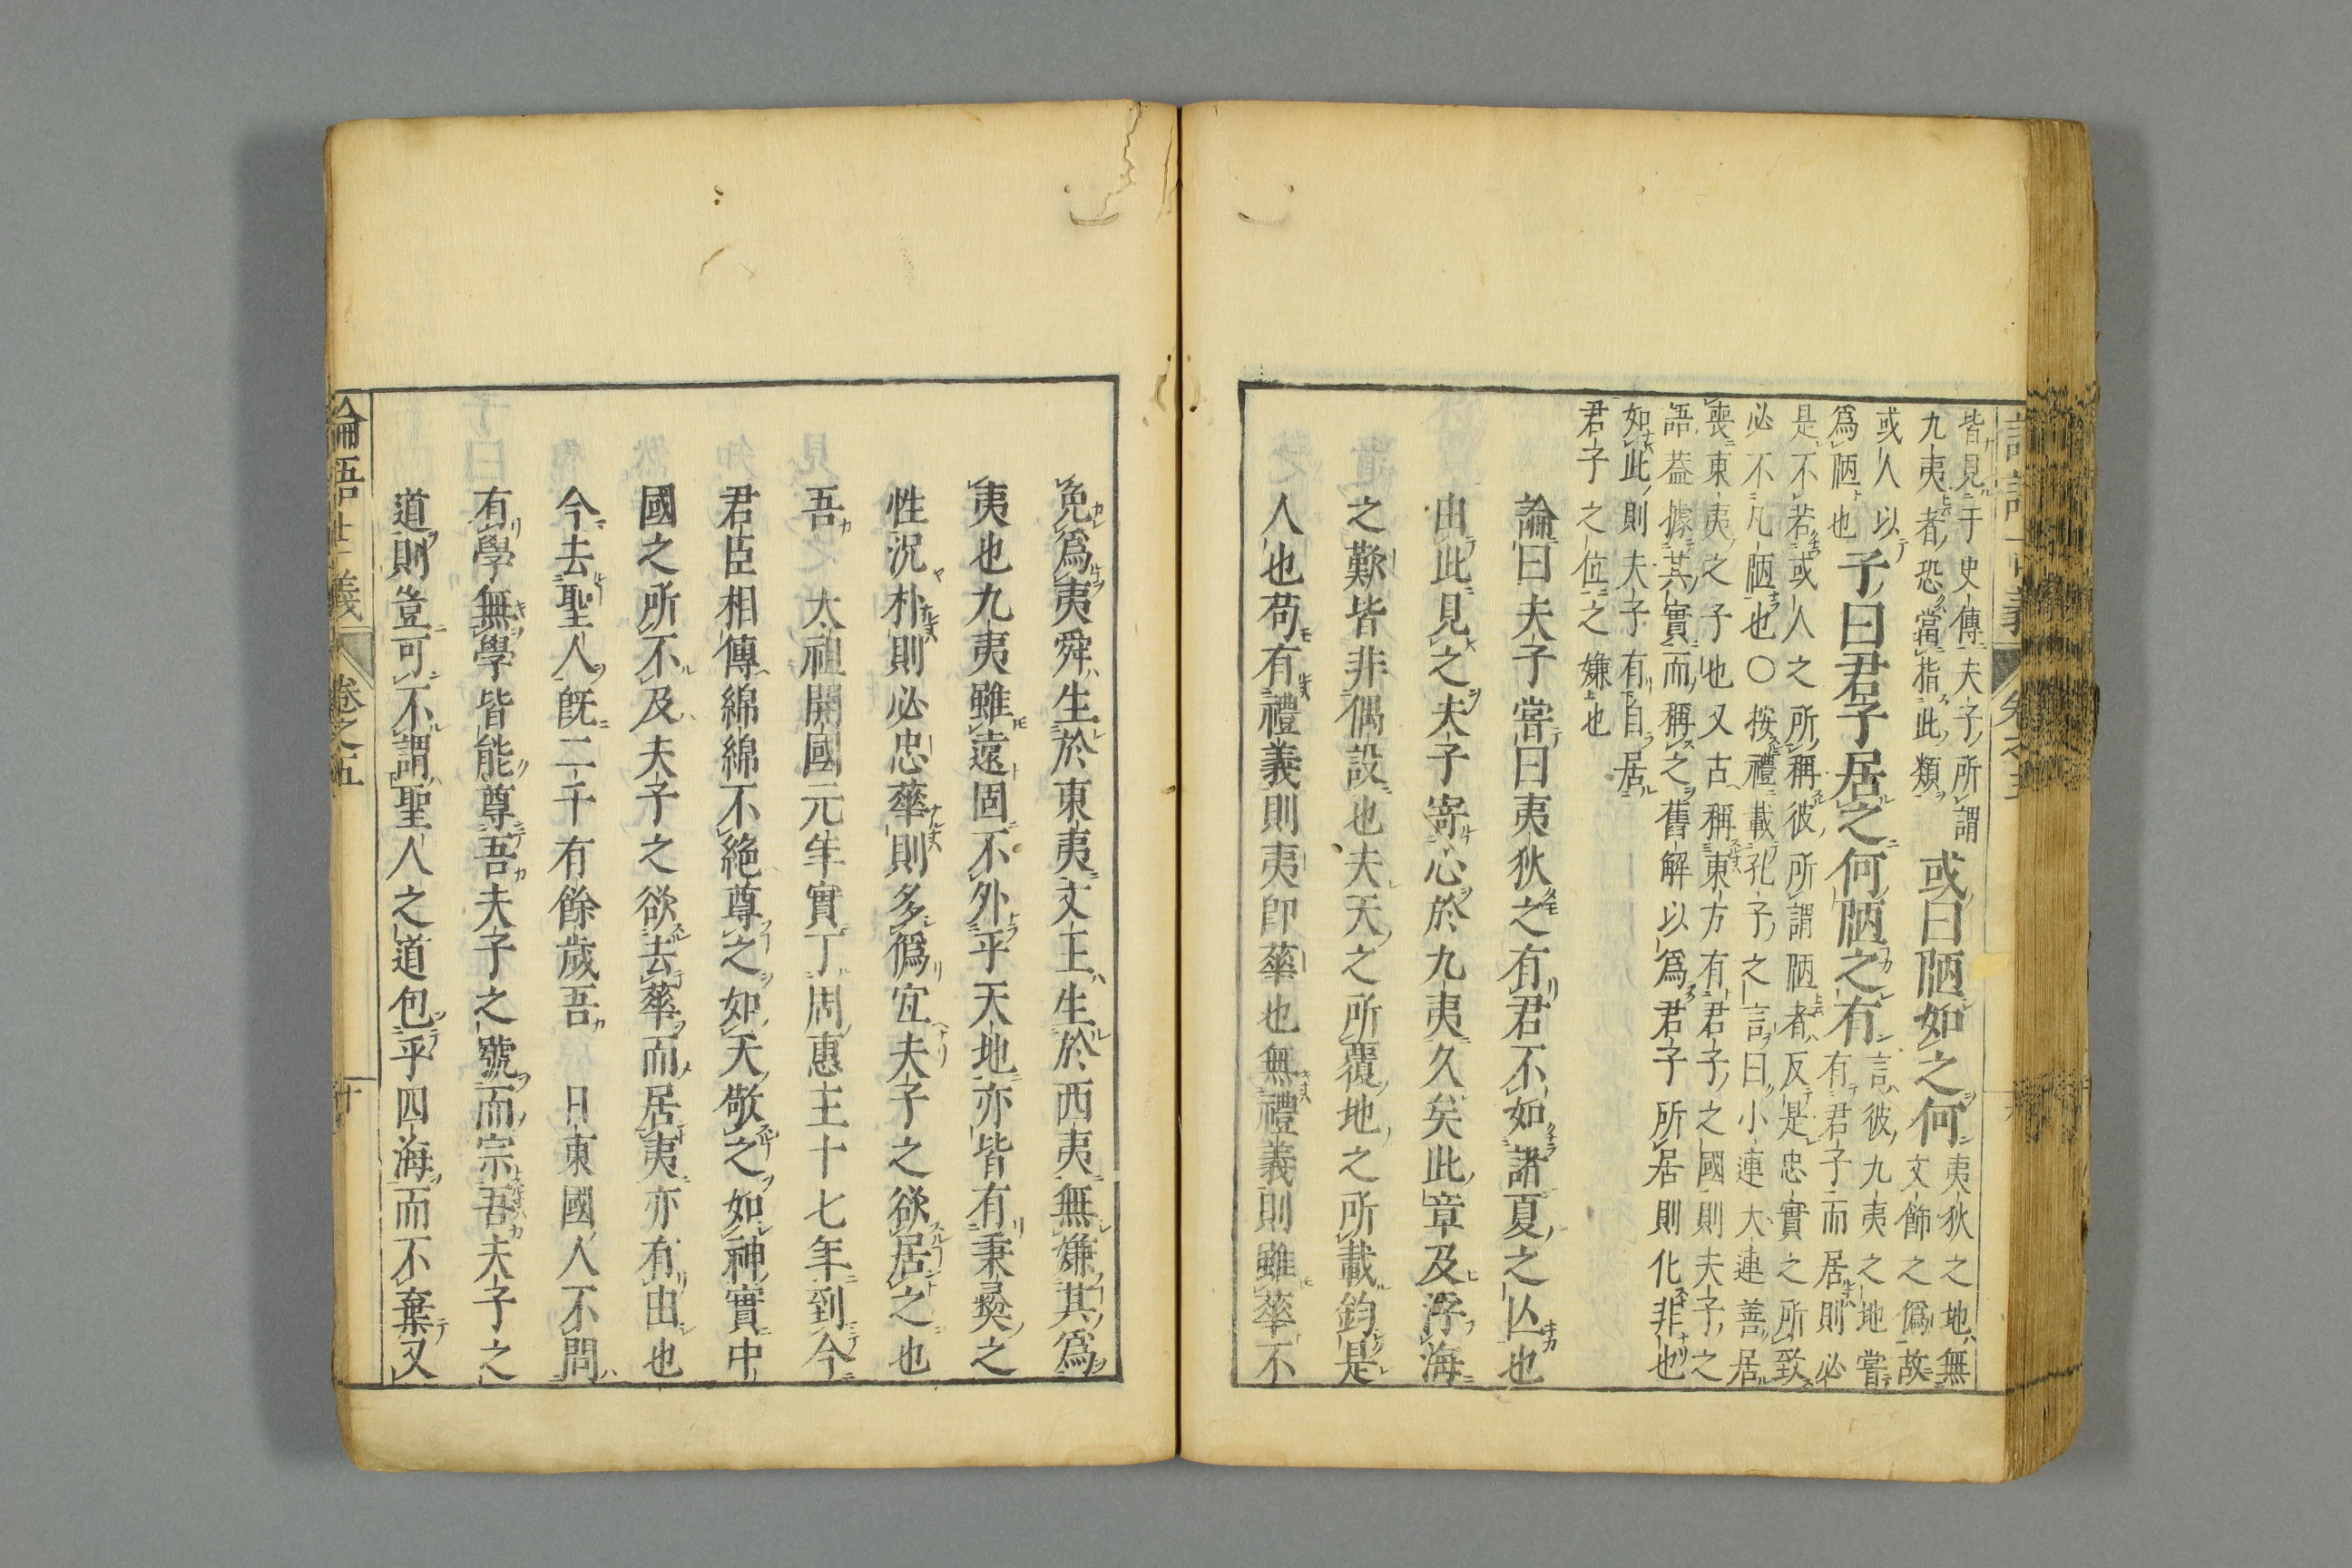 皆見于史傳夫子所謂
九夷者恐當指此類
或曰陋如之何
夷狄之地無
文飾之僞故
或人以
爲陋也
子曰君子居之何陋之有
言彼九夷之地嘗
有君子而居則必
是不若或人之所稱彼所謂陋者反是忠實之所致
必不凡陋也○按禮載孔子之言曰小連大連善居
喪東夷之子也又古稱東方有君子之國則夫子之
語葢據其實而稱之舊解以爲君子所居則化非也
如此則夫子有自居
君子之位之嫌也
論曰夫子嘗曰夷狄之有君不如諸夏之亾也
由此見之夫子寄心於九夷久矣此章及浮海
之歎皆非偶設也夫天之所覆地之所載鈞是
人也苟有禮義則夷即華也無禮義則雖華不
免爲夷舜生於東夷文王生於西夷無嫌其爲
夷也九夷雖遠固不外乎天地亦皆有秉彝之
性況朴則必忠華則多僞宜夫子之欲居之也
吾 太祖開國元年實丁周惠王十七年到今
君臣相傳綿綿不絶尊之如天敬之如神實中
國之所不及夫子之欲去華而居夷亦有由也
今去聖人既二千有餘歲吾 日東國人不問
有學無學皆能尊吾夫子之號而宗吾夫子之
道則豈可不謂聖人之道包乎四海而不棄又
論語古義 卷之五 十